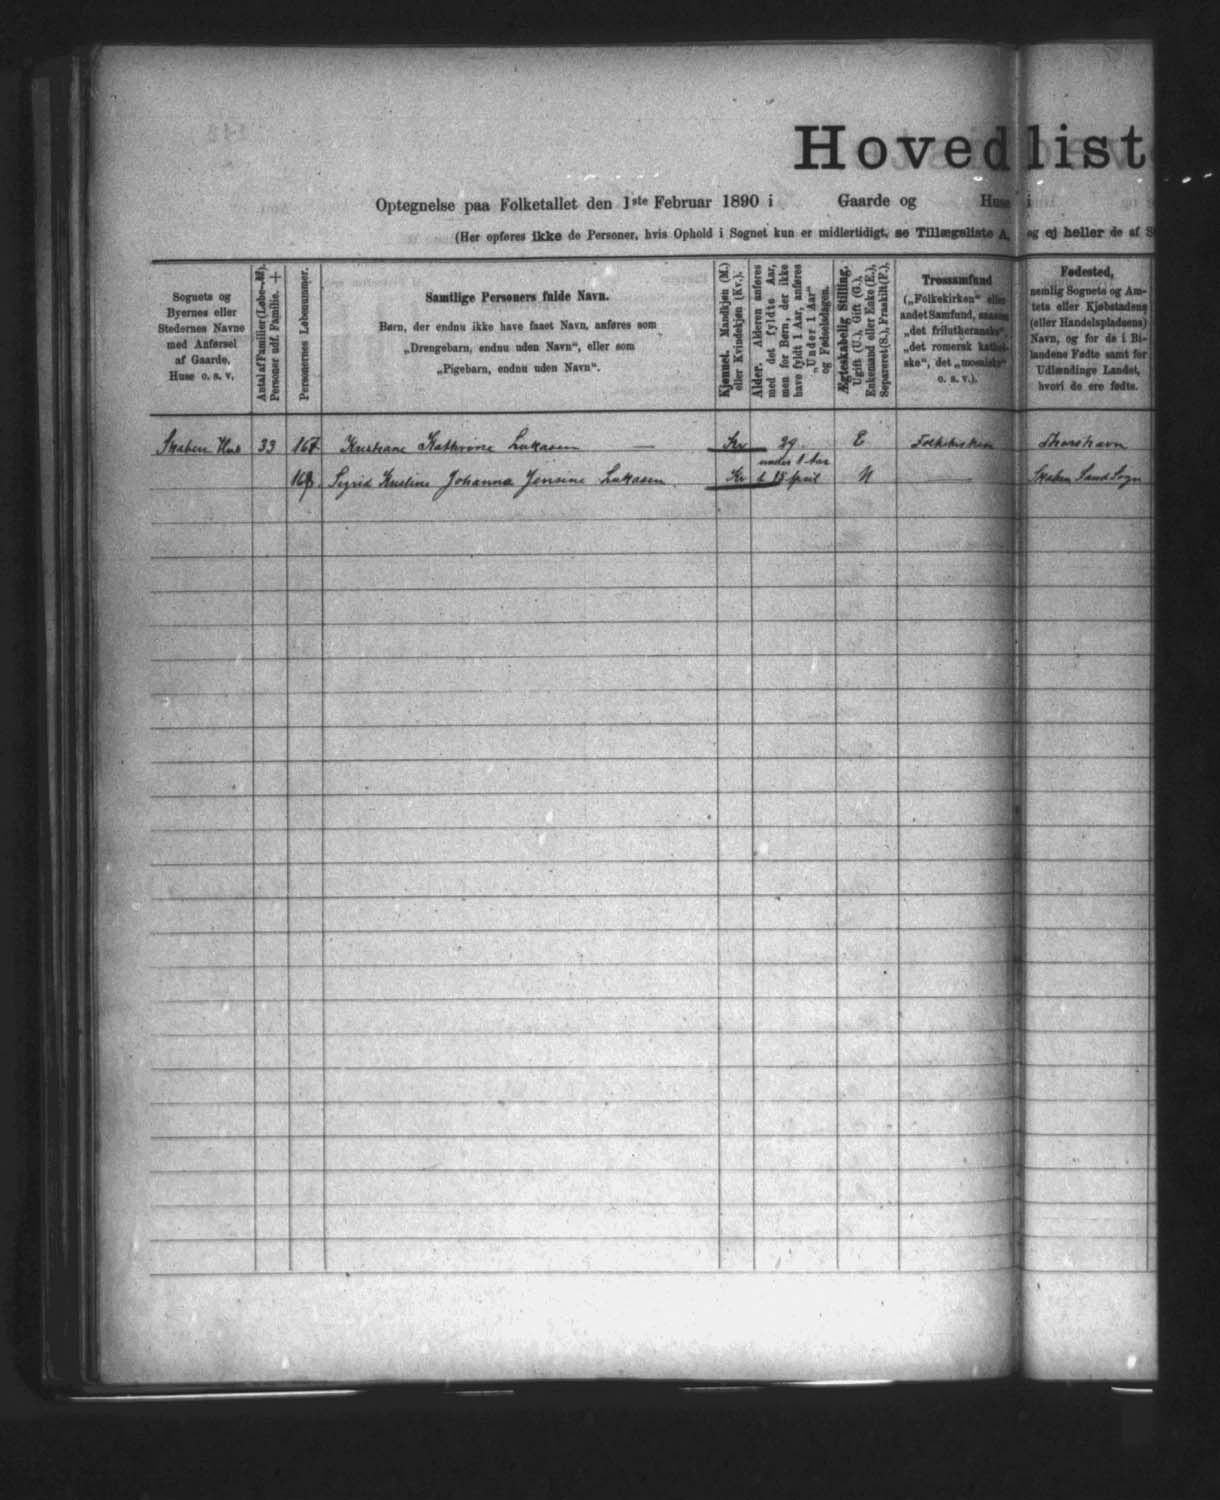 Hovedliste
Optegnelse paa Folketallet den 1ste Februar 1890 i Gaarde og Huse i
(Her opføres ikke de Personer, hvis Ophold i Sognet kun er midlertidigt, se Tillægsliste A, og ej heller de af S
Sognets og
Byernes eller
Stedernes Navne
med Anførsel
af Gaarde,
Huse o. s. v.
Antal af Familier (Løbe-№).
Personer udf. Familie. +
Personernes Løbenummer.
Samtlige Personers fulde Navn.
Børn, der endnu ikke have faaet Navn, anføres som
„Drengebarn, endnu uden Navn“, eller som
„Pigebarn, endnu uden Navn“.
Kjønnet. Mandkjøn (M.)
eller Kvindekjøn (Kv.).
Alder. Alderen anføres
med det fyldte Aar,
men for Børn, der ikke
have fyldt 1 Aar, anføres
„Under 1 Aar“
og Fødselsdagen.
Ægteskabelig Stilling.
Ugift (U.), Gift (G.),
Enkemand eller Enke (E.),
Separeret (S.), Fraskilt (F.).
Trossamfund
(„Folkekirken“ eller
andet Samfund, saasom
„det frilutheranske“,
„det romersk katholske“, det „mosaiske“
o. s. v.).
Fødested,
nemlig Sognets og Amtets eller Kjøbstadens
(eller Handelspladsens)
Navn, og for de i Bilandene Fødte samt for
Udlændinge Landet,
hvori de ere fødte.
Skaben Hus 33 167. Kristiane Kathrine Lukasen — Kv 39. E Folkekirken Thorshavn
under 1 Aar
168. Sigrid Kristine Johanna Jensine Lukasen. Kv d. 15 April U — Skaben Sand Sogn